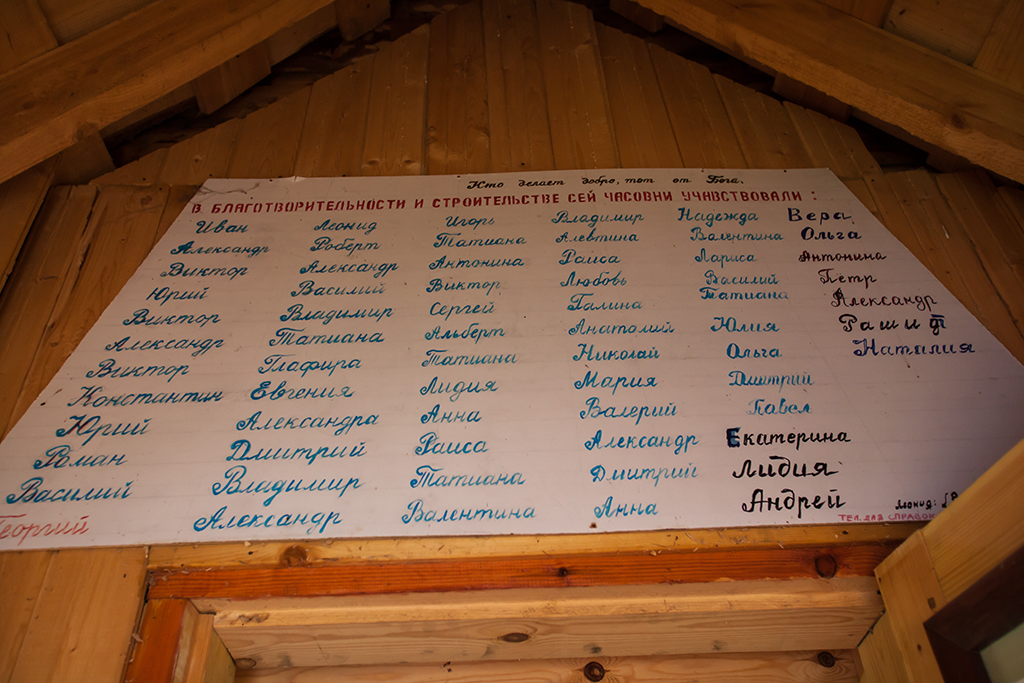 Кто делает добро, тот от Бога.
В БЛАГОТВОРИТЕЛЬНОСТИ И СТРОИТЕЛЬСТВЕ СЕЙ ЧАСОВНИ УЧАВСТВОВАЛИ :
Иван Леонид Игорь Владимир Надежда Вера
Александр Роберт Татиана Алевтина Валентина Ольга
Виктор Александр Антонина Раиса Лариса Антонина
Юрий Василий Виктор Любовь Василий Петр
Виктор Владимир Сергей Галина Татиана Александр
Александр Татиана Альберт Анатолий Юлия Рашид
Виктор Глафира Татиана Николай Ольга Наталия
Константин Евгения Лидия Мария Дмитрий
Юрий Александра Анна Валерий Павел
Роман Дмитрий Раиса Александр Екатерина
Василий Владимир Татиана Дмитрий Лидия
Георгий Александр Валентина Анна Андрей
ТЕЛ. ДЛЯ СПРАВОК